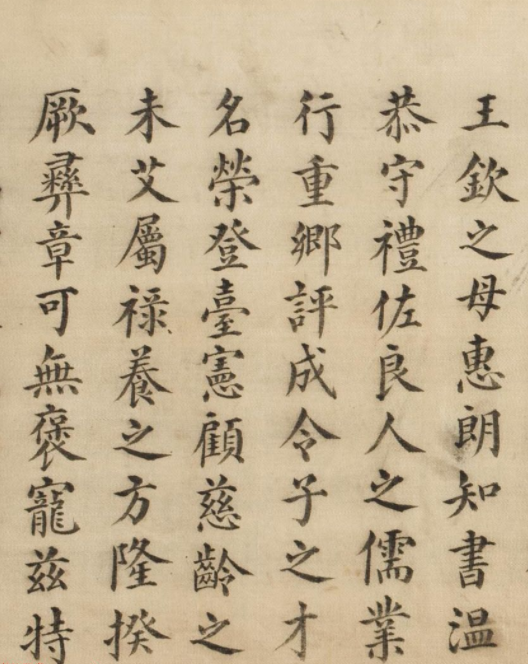 王欽之母惠朗知書温
恭守禮佐良人之儒業
行重鄉評成令子之才
名榮登臺憲顧慈齡之
未艾屬禄養之方隆揆
厥彞章可無褒寵兹特